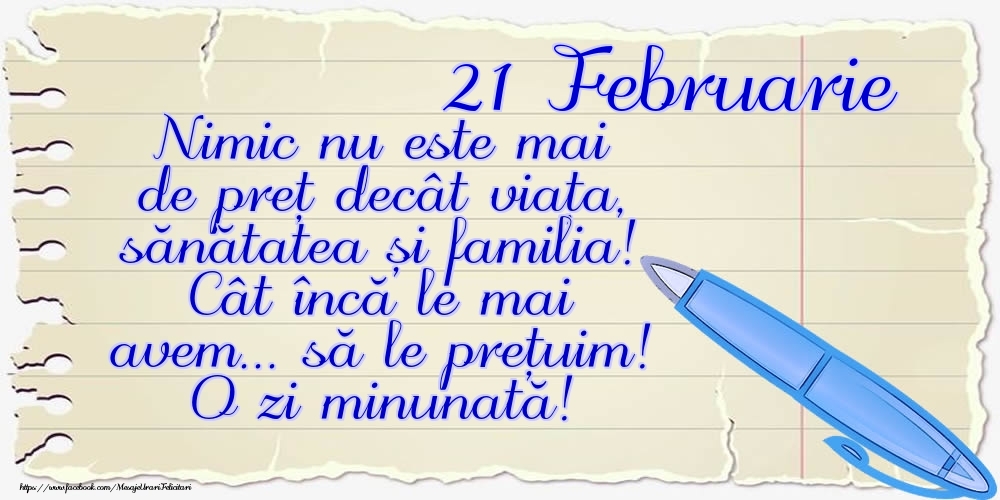 21 Februarie
Nimic nu este mai
de preț decât viața,
sănătatea și familia!
Cât încă le mai
avem... să le prețuim!
O zi minunată!
https://www.facebook.com/MesajeUrariFelicitari